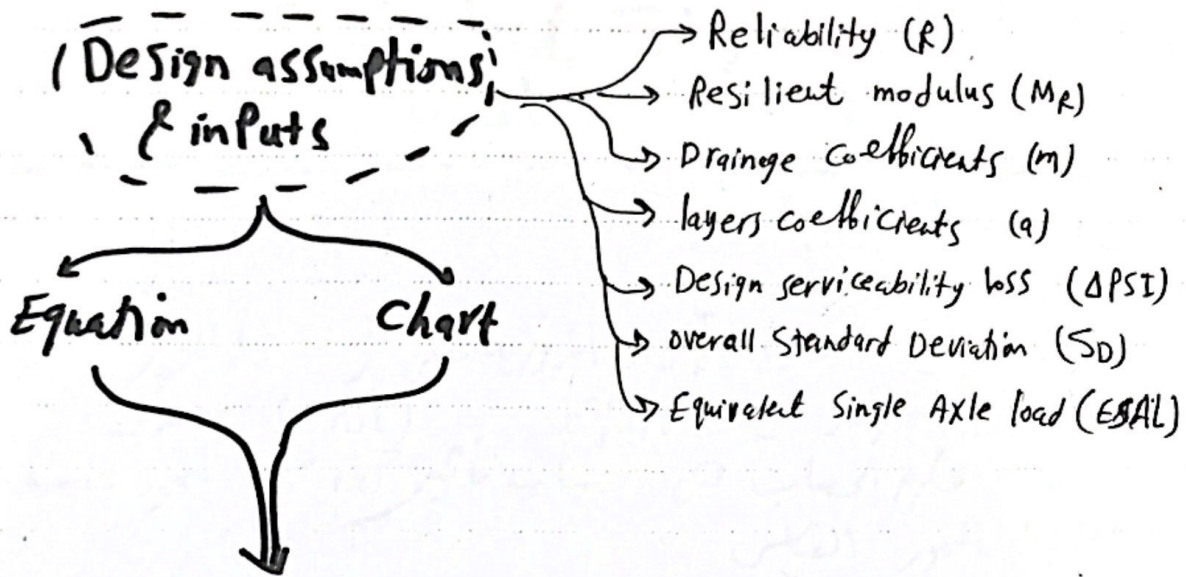 Design assumptions
& inputs
Equation
Chart
Reliability (R)
Resilient modulus (MR)
Drainage coefficients (m)
layers coefficients (a)
Design serviceability loss (ΔPSI)
overall Standard Deviation (SD)
Equivalent Single Axle load (ESAL)